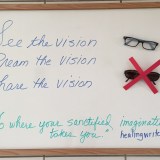 See the vision
Dream the vision
Share the vision
Go where your sanctified
takes you"
imagination
healingwrit